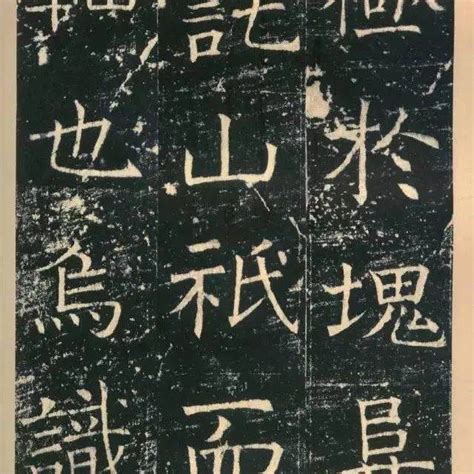 極於塊阜
託山祇而
也烏識